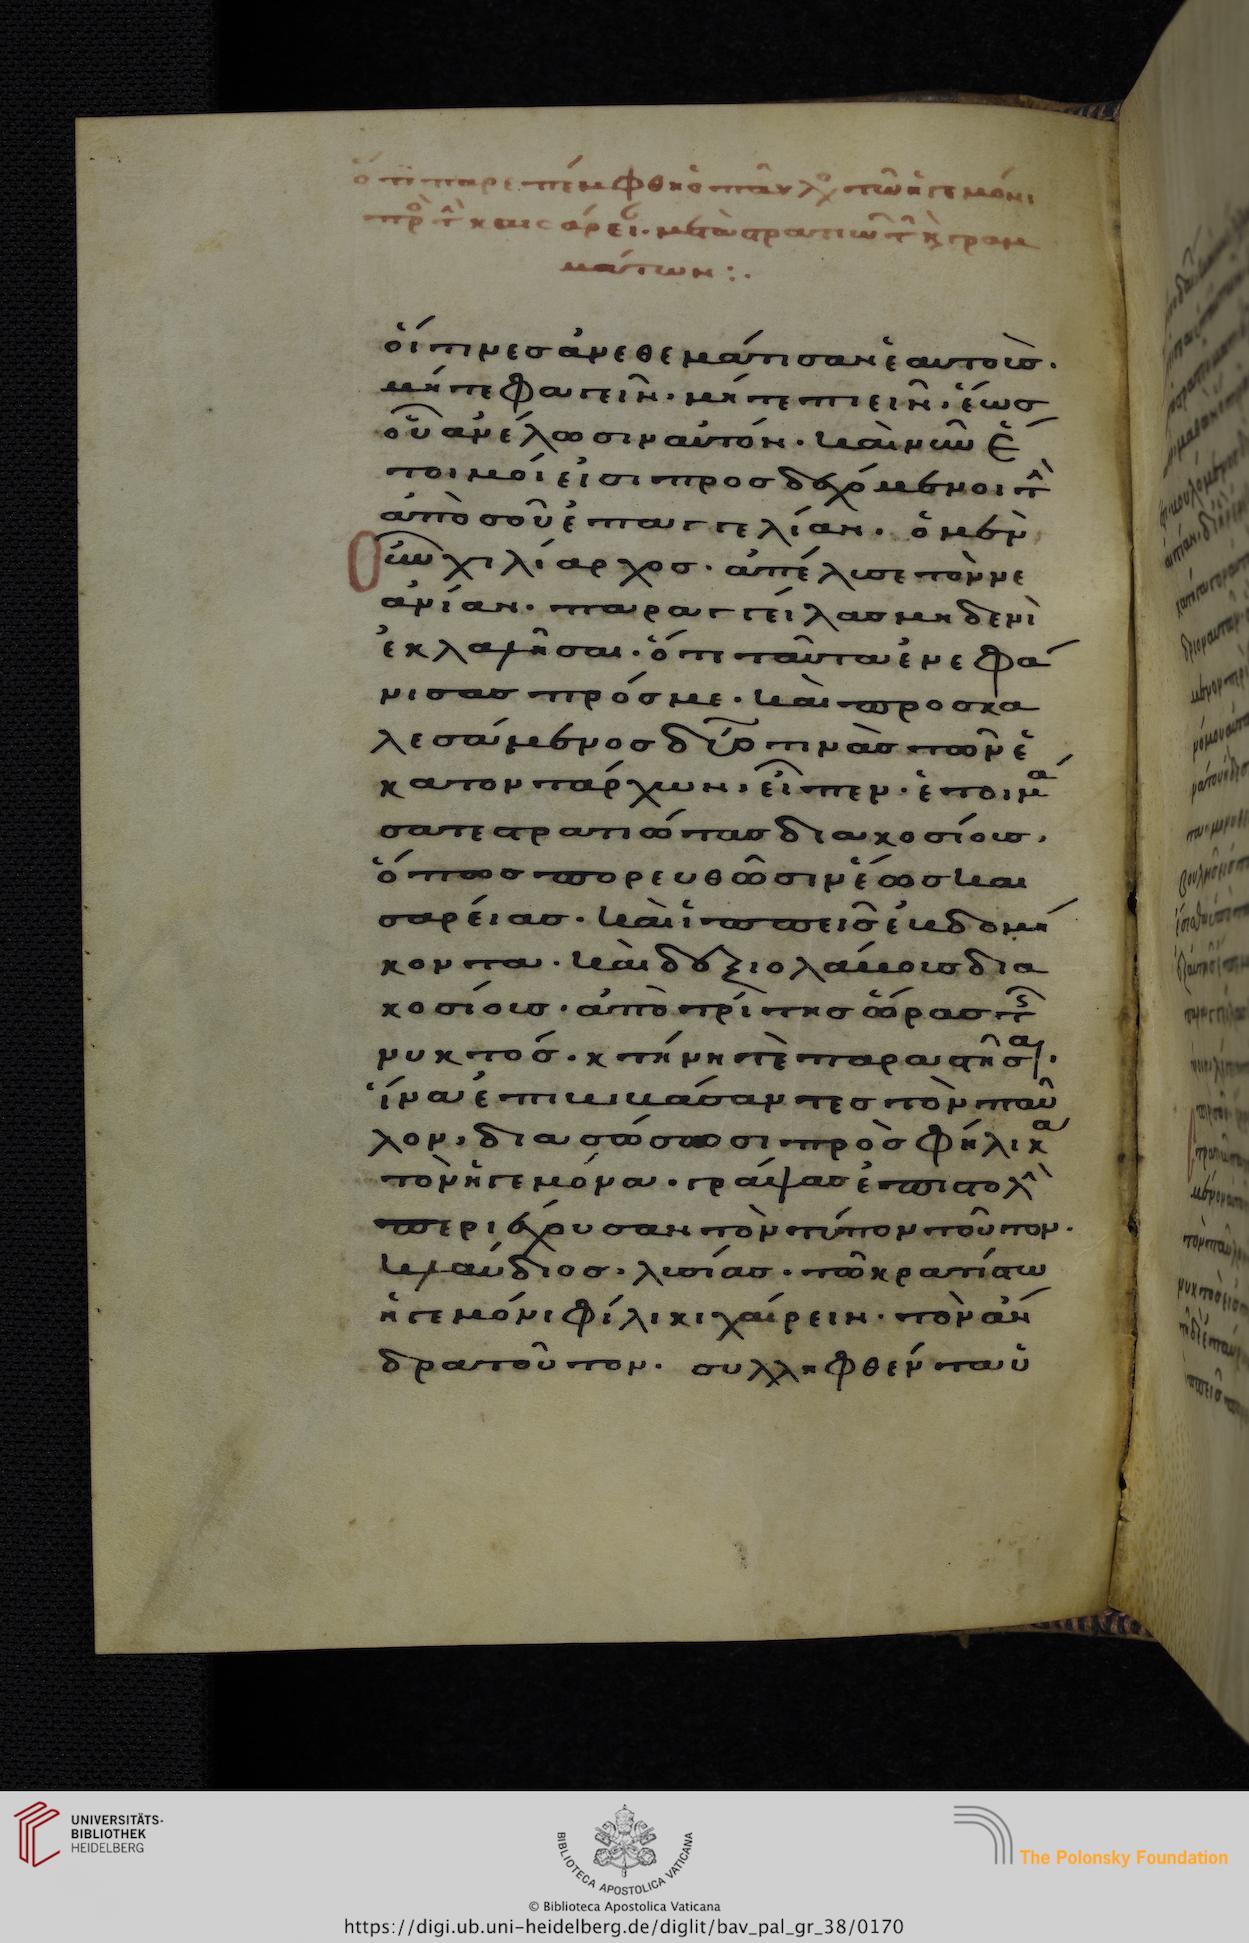 ὅτι παρεπέμφθη ὁ παῦλος τῶ ἡγεμόνι
πρὸς τὴν καισάρειαν μετὰ στρατιωτῶν καὶ γραμ
μάτων :.
οἵτινες ἀνεθεμάτισαν ἑαυτοὺς·
μήτε φαγεῖν· μήτε πιεῖν· ἕως
οὗ ἀνέλωσιν αὐτόν· καὶ νῦν ἕ
τοιμοί εἰσι προσδεχόμενοι τὴν
ἀπὸ σοῦ ἐπαγγελίαν. ὁ μὲν
οὖν χιλίαρχος· ἀπέλυσε τὸν νε
ανίαν· παραγγείλας μηδενὶ
ἐκλαλῆσαι· ὅτι ταῦτα ἐνεφά
νισας πρός με· καὶ προσκα
λεσάμενος δύο τινὰς τῶν ἑ
κατοντάρχων, εἶπεν· ἑτοιμά
σατε στρατιώτας διακοσίους,
ὅπως πορευθῶσιν ἕως και
σαρείας· καὶ ἱππεῖς ἑβδομή
κοντα· καὶ δεξιολάβους δια
κοσίους· ἀπὸ τρίτης ὥρας τῆς
νυκτός· κτήνη τὲ παραστῆσαι·
ἵνα ἐπιβιβάσαντες τὸν παῦ
λον, διασώσωσι πρὸς φήλικα
τὸν ἡγεμόνα· γράψας ἐπιστολὴν
περιέχουσαν τὸν τύπον τοῦτον·
κλαύδιος· λυσίας· τῶ κρατίστω
ἡγεμόνι φίλικι χαίρειν· τὸν ἄν
δρα τοῦτον· συλληφθέντα ὑ
UNIVERSITÄTS-
BIBLIOTHEK
HEIDELBERG
BIBLIOTECA APOSTOLICA VATICANA
The Polonsky Foundation
© Biblioteca Apostolica Vaticana
https://digi.ub.uni-heidelberg.de/diglit/bav_pal_gr_38/0170